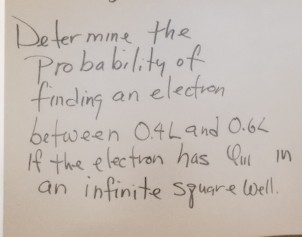 Determine the
Probability of
finding an electron
between 0.4L and 0.6L
If the electron has in
an infinite square well.